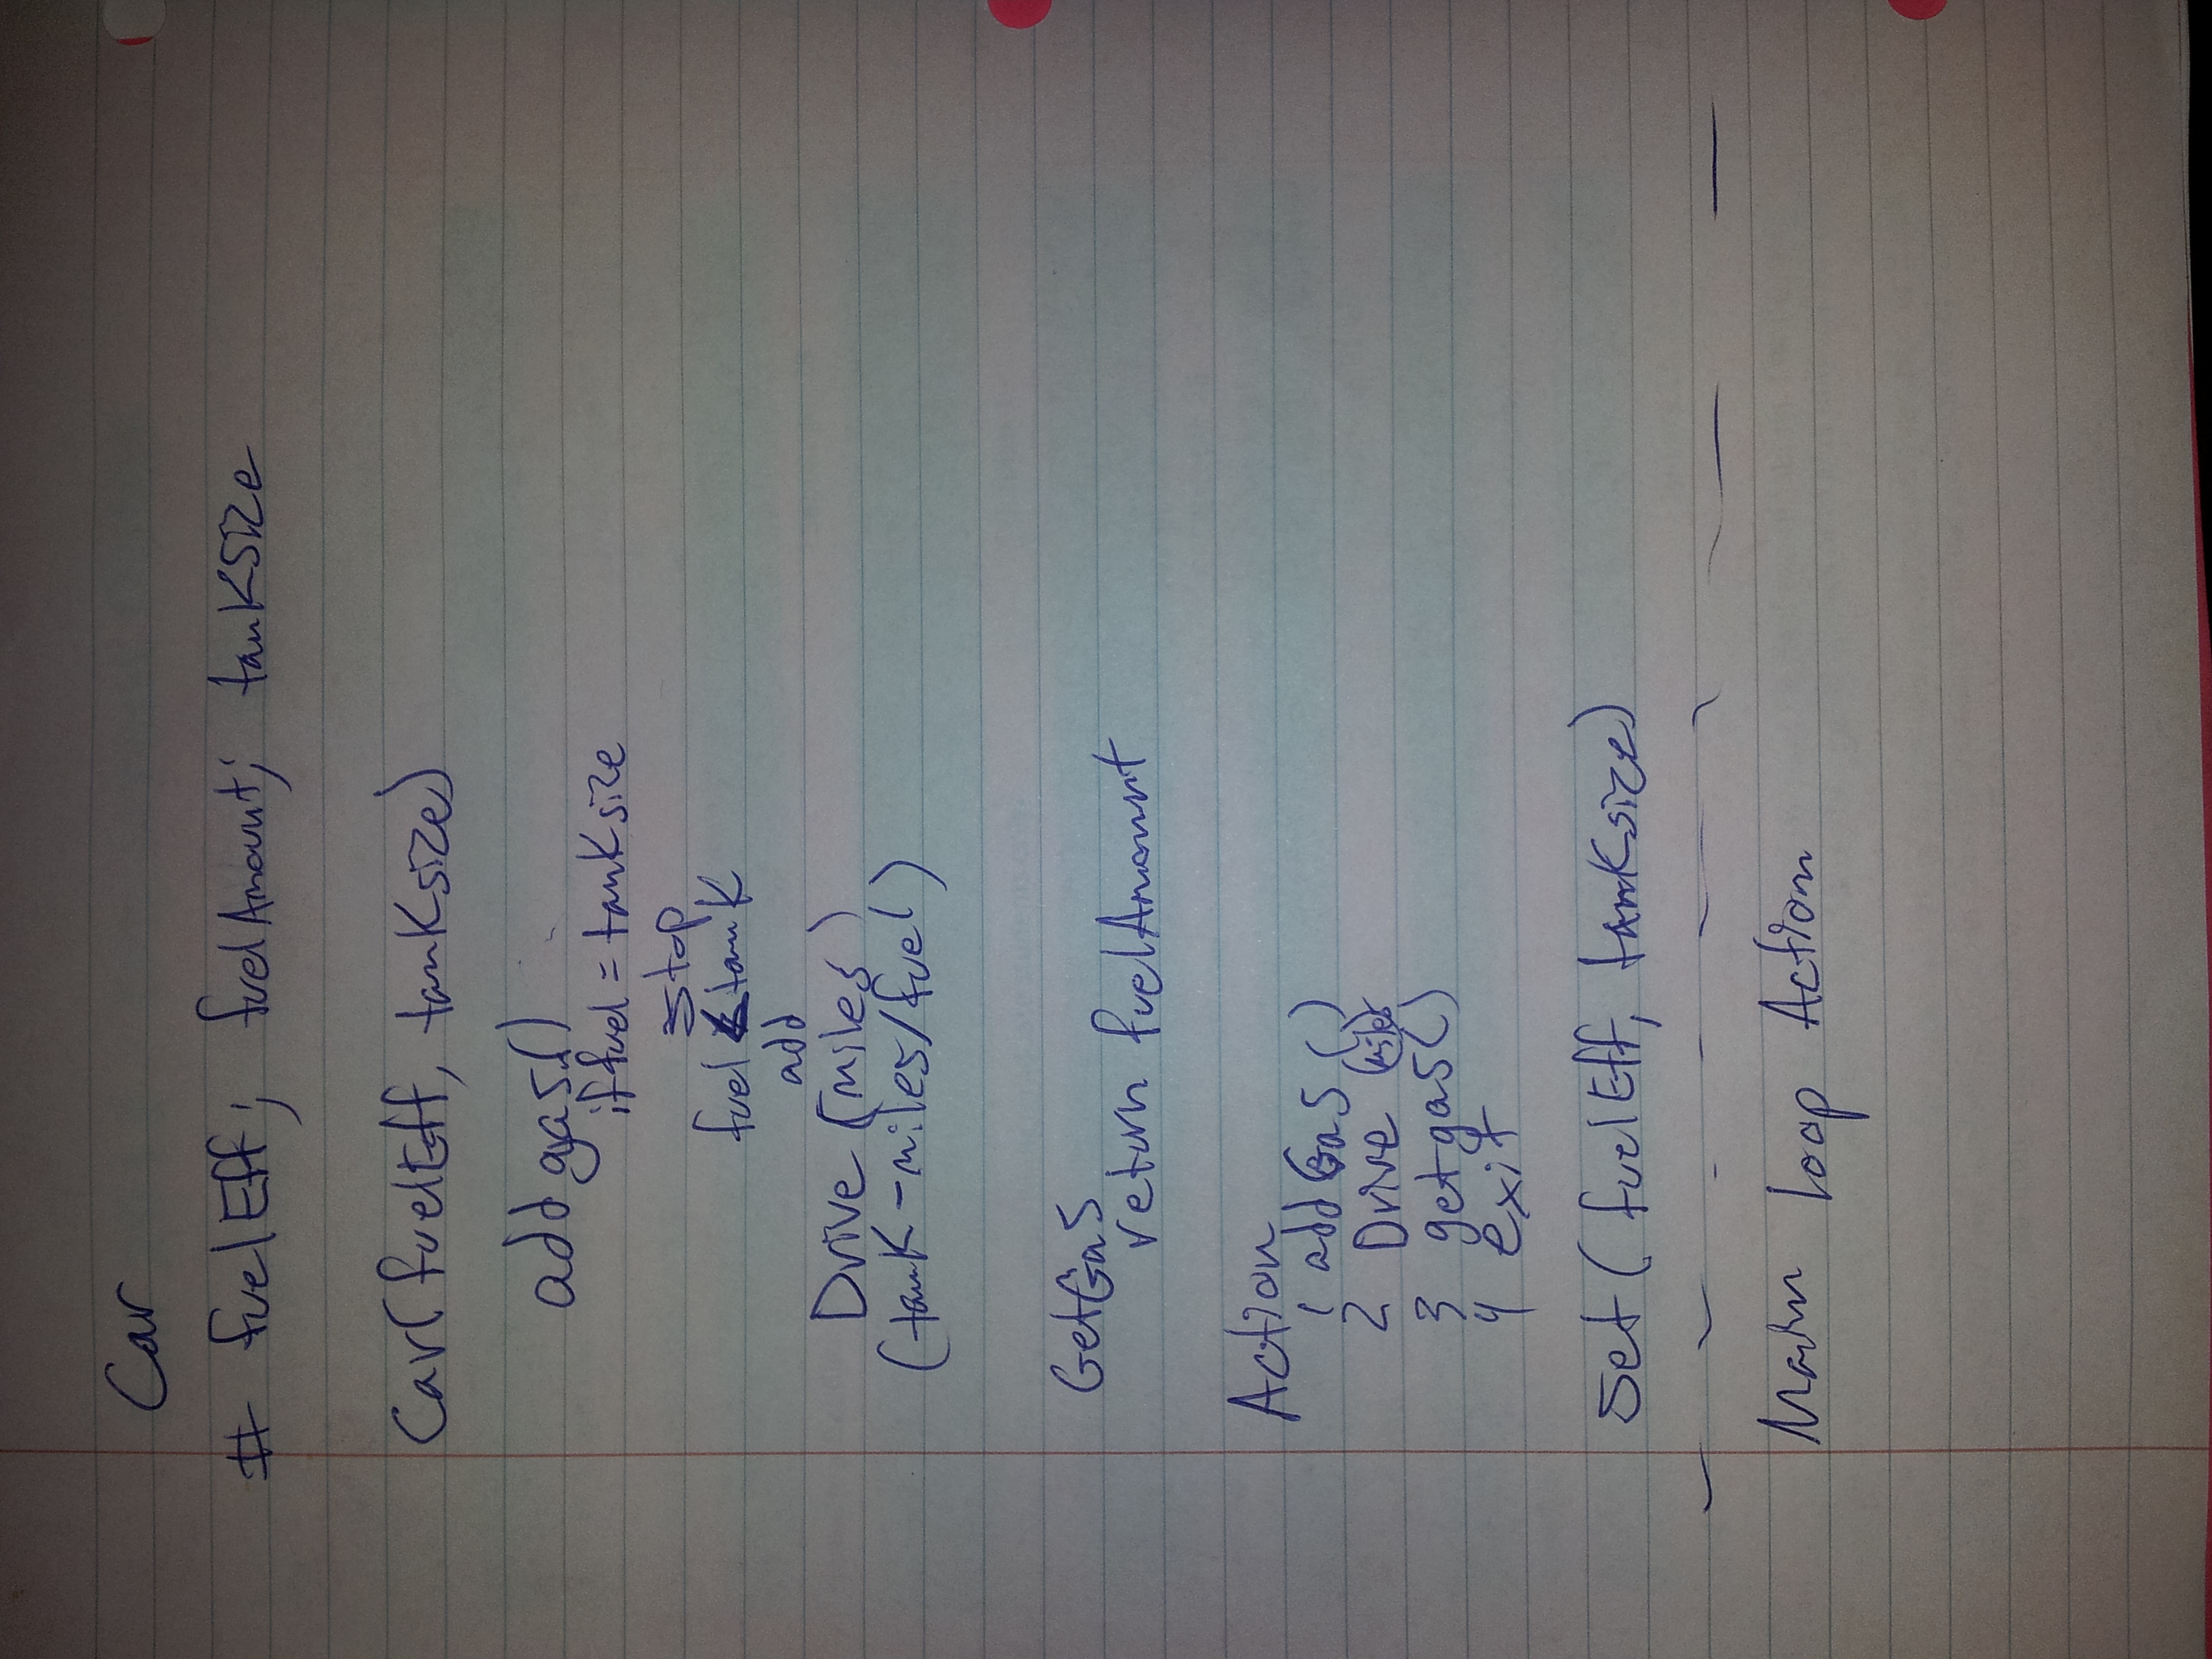 Car
# fuelEff; fuelAmount; tankSize
Car(fuelEff, tanksize)
add gas()
if fuel = tanksize
stop
fuel < tank
add
Drive (miles)
(tank - miles/fuel)
GetGas
return fuelAmount
Action
1 addGas()
2 Drive (miles)
3 getgas()
4 exit
set(fuelEff, tanksize)
Main loop Action